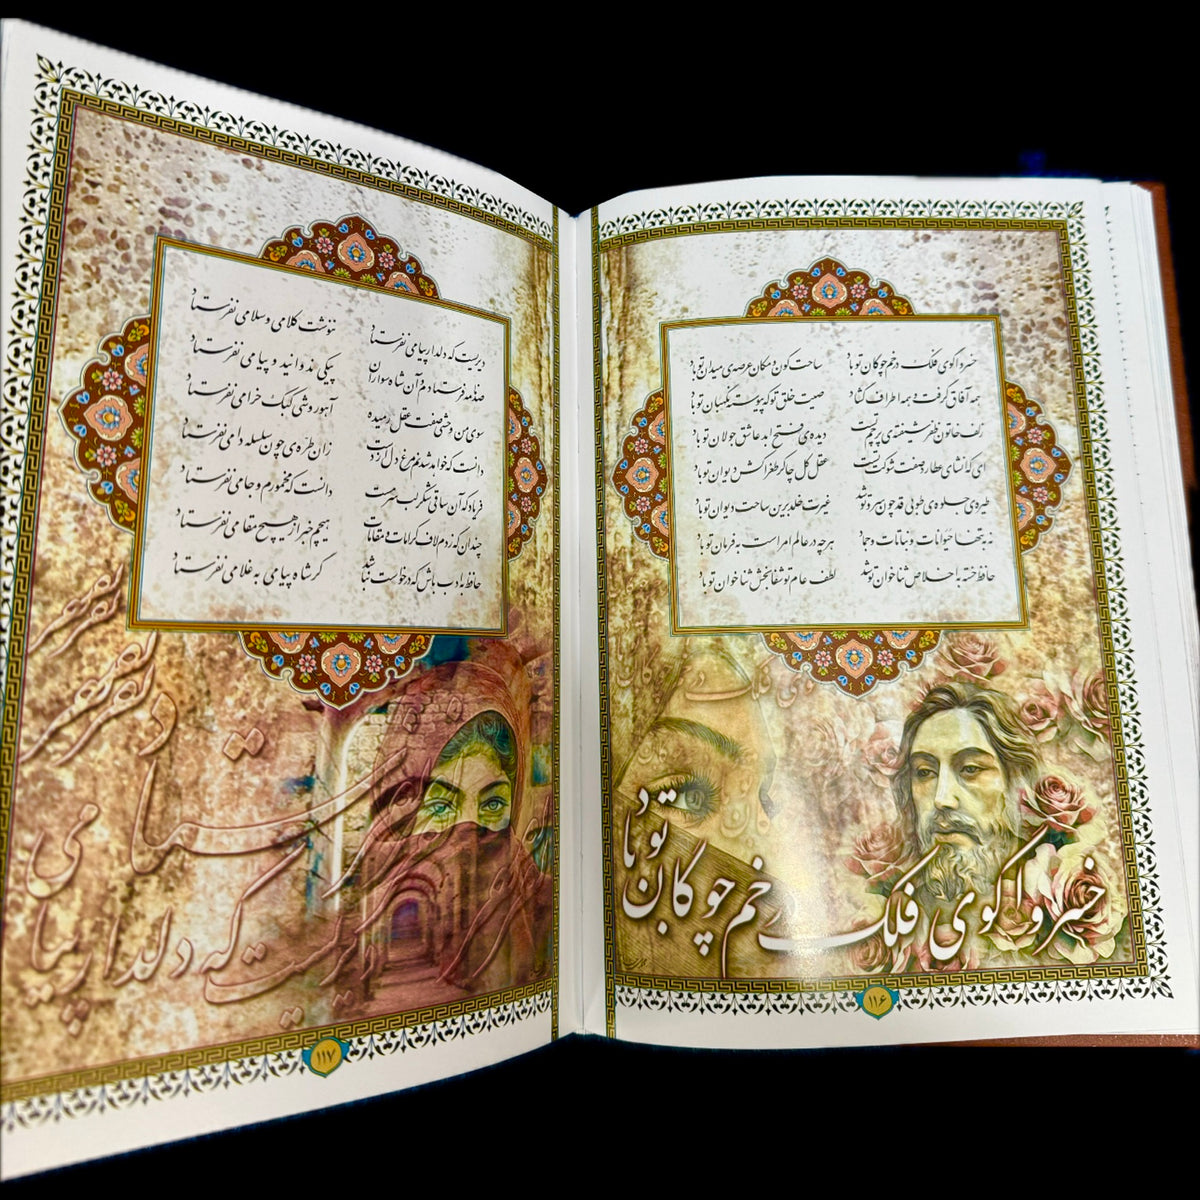 خسروا گوی فلک در خم چوگان تو باد ساحت کون و مکان عرصه‌ی میدان تو باد
همه آفاق گرفت و همه اطراف گشاد صیت خلق تو که پیوسته نگهبان تو باد
زلف خاتون ظفر شیفته‌ی پرچم تست دیده‌ی فتح ابد عاشق جولان تو باد
ای که انشای عطارد صفت شوکت تست عقل کل چاکر طغراکش دیوان تو باد
طیره‌ی جلوه‌ی طوبی قد چون سرو تو شد غیرت خلد برین ساحت دیوان تو باد
نه به تنها حیوانات و نباتات و جماد هرچه در عالم امر است به فرمان تو باد
حافظ خسته با خلاص ثناخوان تو شد لطف عام تو شفابخش ثناخوان تو باد
خسروا گوی فلک در خم چوگان تو باد
۱۱۶
دیریست که دلدار پیامی نفرستاد ننوشت کلامی و سلامی نفرستاد
صد نامه فرستادم و آن شاه سواران پیکی ندوانید و پیامی نفرستاد
سوی من وحشی صفت عقل رمیده آهو روشی کبک خرامی نفرستاد
دانست که خواهد شدنم مرغ دل از دست زان طره‌ی چون سلسله دامی نفرستاد
فریاد که آن ساقی شکر لب سرمست دانست که مخمورم و جامی نفرستاد
چندان که زدم لاف کرامات و مقامات هیچم خبر از هیچ مقامی نفرستاد
حافظ به ادب باش که درخواست نباشد گر شاه پیامی به غلامی نفرستاد
دیریست که دلدار پیامی نفرستاد
۱۱۷